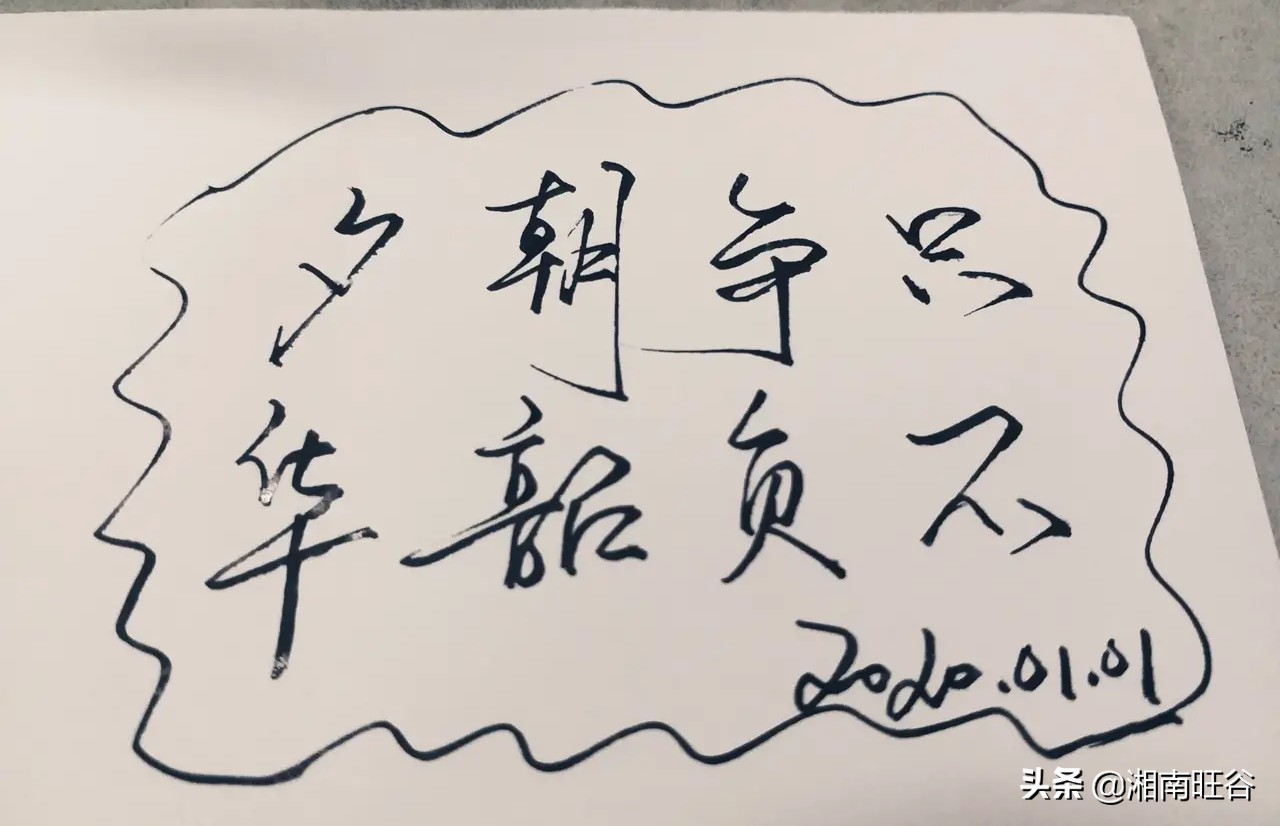 只争朝夕
不负韶华
2020.01.01
头条 @湘南旺谷